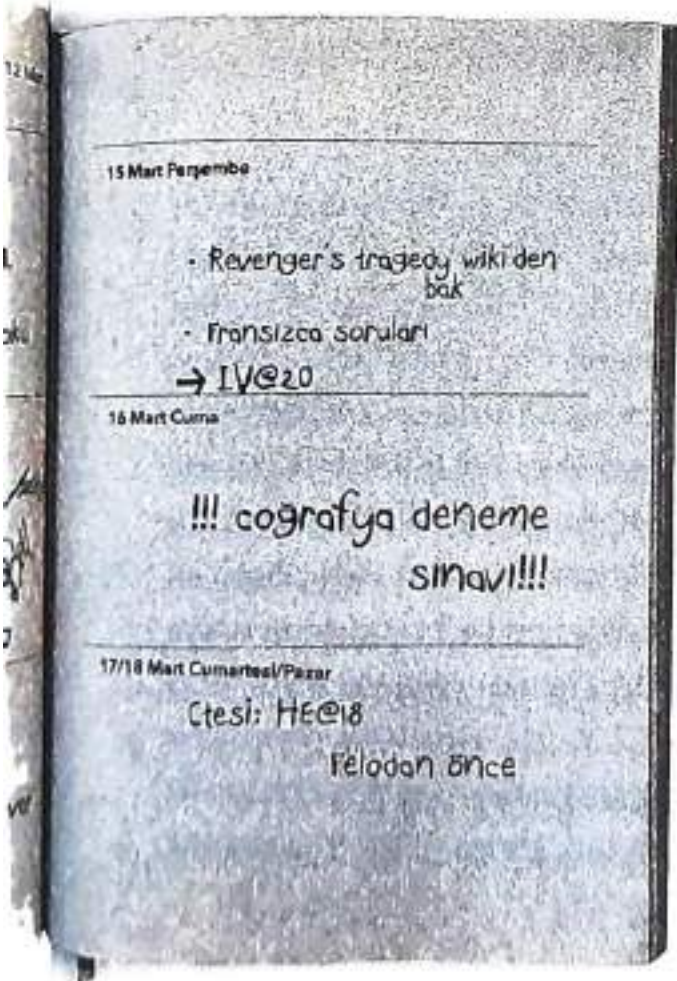 15 Mart Perşembe
- Revenger's tragedy wiki den
bak
- Fransizca soruları
→ IV@20
16 Mart Cuma
!!! cografya deneme
sınavı!!!
17/18 Mart Cumartesi/Pazar
Ctesi: HE@18
Felodan önce